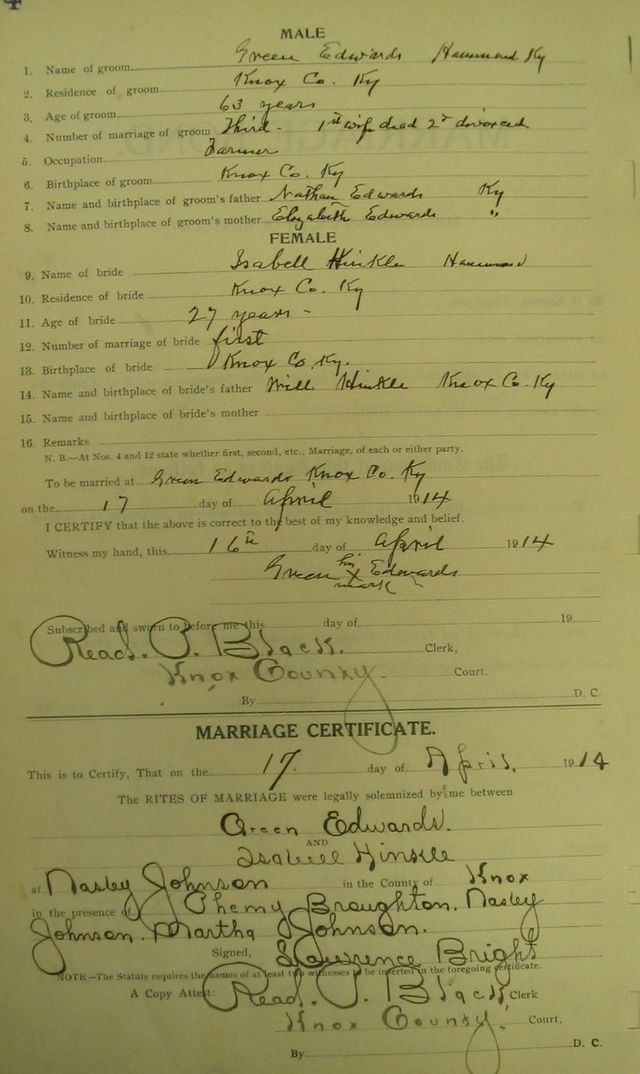 4
MALE
1. Name of groom Green Edwards Hammond Ky
2. Residence of groom Knox Co. Ky
3. Age of groom 63 years
4. Number of marriage of groom Third - 1st wife dead 2d divorced
5. Occupation Farmer
6. Birthplace of groom Knox Co. Ky
7. Name and birthplace of groom's father Nathan Edwards Ky
8. Name and birthplace of groom's mother Elizabeth Edwards "
FEMALE
9. Name of bride Isabell Hinkle Hammond
10. Residence of bride Knox Co. Ky
11. Age of bride 27 years -
12. Number of marriage of bride first
13. Birthplace of bride Knox Co. Ky.
14. Name and birthplace of bride's father Will Hinkle Knox Co. Ky
15. Name and birthplace of bride's mother
16. Remarks
N. B.—At Nos. 4 and 12 state whether first, second, etc., Marriage, of each or either party.
To be married at Green Edwards Knox Co. Ky
on the 17 day of April 1914
I CERTIFY that the above is correct to the best of my knowledge and belief.
Witness my hand, this 16th day of April 1914
Green his x Edwards
mark
Subscribed and sworn to before me this day of 19
Read. P. Black. Clerk,
Knox County. Court.
By D. C.
MARRIAGE CERTIFICATE.
This is to Certify, That on the 17. day of April, 1914
The RITES OF MARRIAGE were legally solemnized by me between
Green Edwards.
AND
Isabell Hinkle
at Nasley Johnson in the County of Knox
in the presence of Broughton, Nasley
Johnson. Martha Johnson.
Signed, Bright
NOTE—The Statute requires the names of at least two witnesses to be inserted in the foregoing certificate.
A Copy Attest: Read. P. Black Clerk
Knox County. Court.
By D. C.